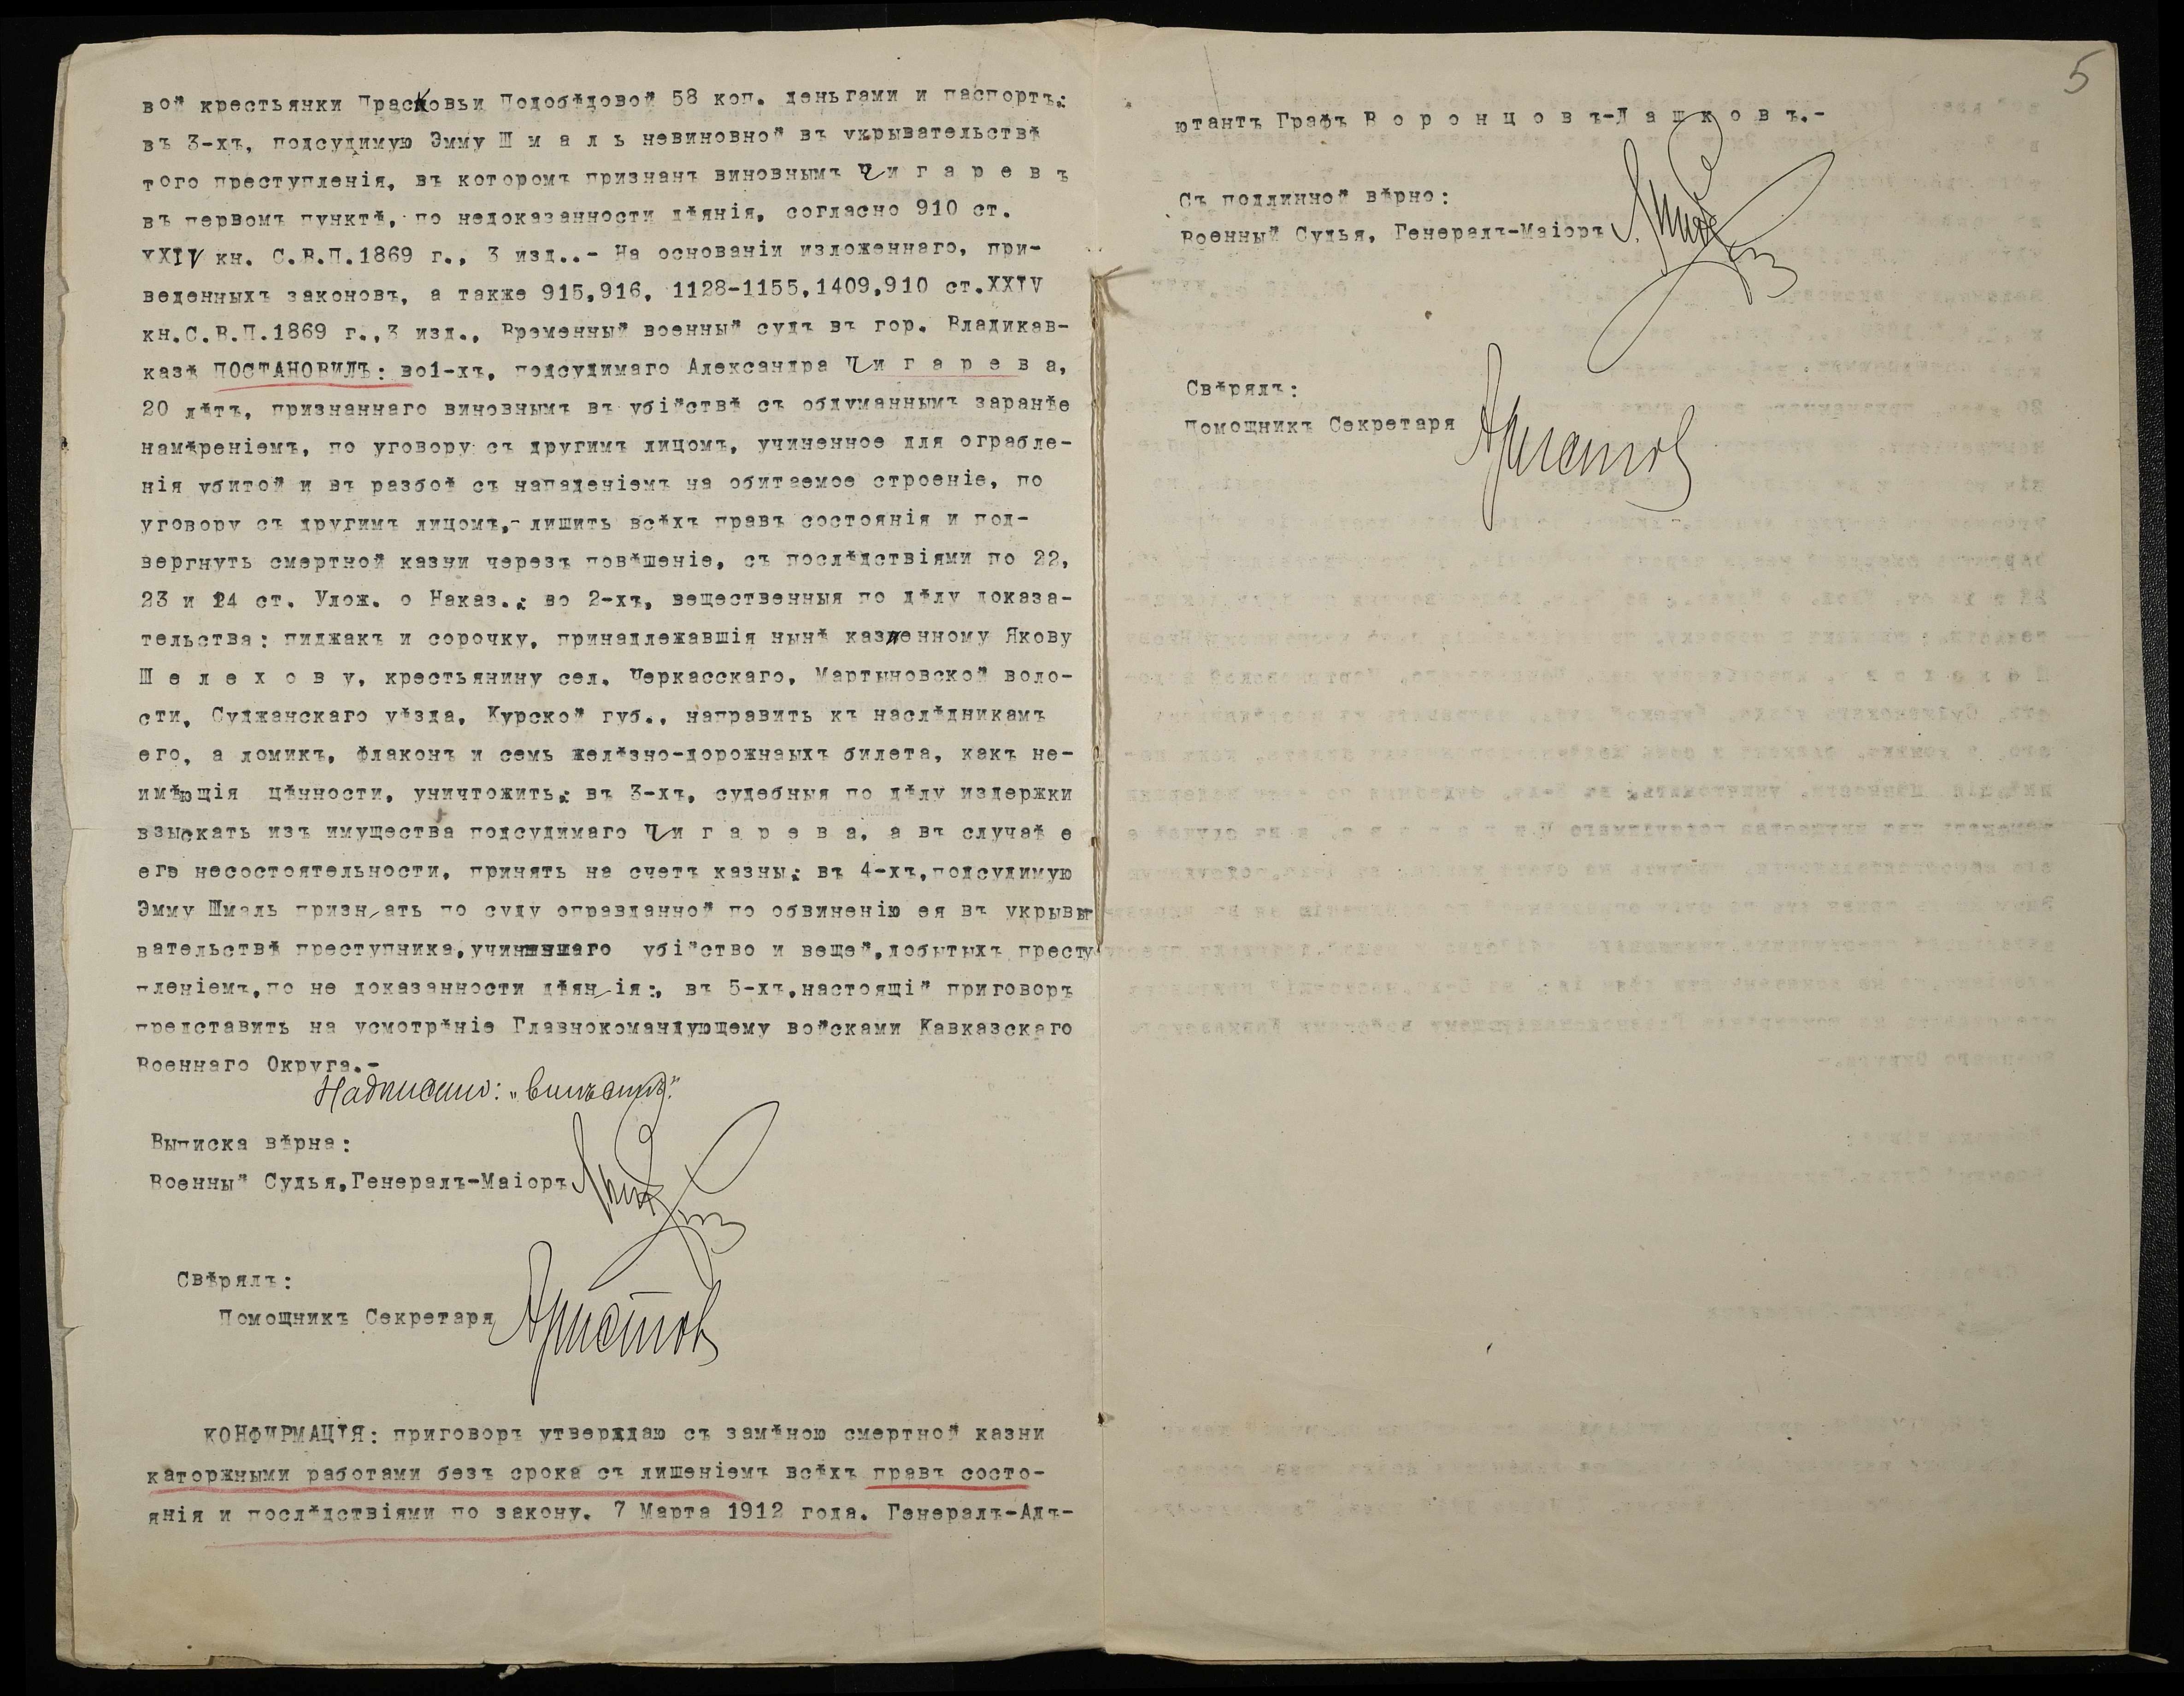 вой крестьянки Прасковьи Подобѣдовой 58 коп. деньгами и паспортъ;
въ 3-хъ, подсудимую Эмму Ш м а л ь невиновной въ укрывательствѣ
того преступленія, въ которомъ признанъ виновнымъ Ч и г а р е в ъ
въ первомъ пунктѣ, по недоказанности дѣянія, согласно 910 ст.
XXIV кн. С.В.П.1869 г., 3 изд..- На основаніи изложеннаго, при-
веденныхъ законовъ, а также 915,916, 1128-1155,1409,910 ст.XXIV
кн.С.В.П.1869 г.,3 изд., Временный военный судъ въ гор. Владикав-
казѣ ПОСТАНОВИЛЪ: во1-хъ, подсудимаго Александра Ч и г а р е в а,
20 лѣтъ, признаннаго виновнымъ въ убійствѣ съ обдуманнымъ заранѣе
намѣреніемъ, по уговору съ другимъ лицомъ, учиненное для ограбле-
нія убитой и въ разбоѣ съ нападеніемъ на обитаемое строеніе, по
уговору съ другимъ лицомъ,- лишить всѣхъ правъ состоянія и под-
вергнуть смертной казни черезъ повѣшеніе, съ послѣдствіями по 22,
23 и 24 ст. Улож. о Наказ.; во 2-хъ, вещественныя по дѣлу доказа-
тельства: пиджакъ и сорочку, принадлежавшія нынѣ казненному Якову
Ш е л е х о в у, крестьянину сел. Черкасскаго, Мартыновской воло-
сти, Суджанскаго уѣзда, Курской губ., направить къ наслѣдникамъ
его, а ломикъ, флаконъ и семь желѣзно-дорожнаыхъ билета, какъ не-
имѣющія цѣнности, уничтожить; въ 3-хъ, судебныя по дѣлу издержки
взыскать изъ имущества подсудимаго Ч и г а р е в а, а въ случаѣ е
его несостоятельности, принять на счетъ казны; въ 4-хъ,подсудимую
Эмму Шмаль призн ать по суду оправданной по обвиненію ея въ укрывы
вательствѣ преступника,учинившаго убійство и вещей,добытыхъ престу
пленіемъ,по не доказанности дѣян ія:, въ 5-хъ,настоящій приговоръ
представить на усмотрѣніе Главнокомандующему войсками Кавказскаго
Военнаго Округа.-
Надписано:
Выписка вѣрна:
Военный Судья,Генералъ-Маіоръ
Свѣрялъ:
Помощникъ Секретаря Аристов
КОНФИРМАЦІЯ: приговоръ утверждаю съ замѣною смертной казни
каторжными работами безъ срока съ лишеніемъ всѣхъ правъ состо-
янія и послѣдствіями по закону. 7 Марта 1912 года. Генералъ-Адъ-
5
ютантъ Графъ В о р о н ц о в ъ-Д а ш к о в ъ.-
Съ подлинной вѣрно:
Военный Судья, Генералъ-Маіоръ
Свѣрялъ:
Помощникъ Секретаря Аристов